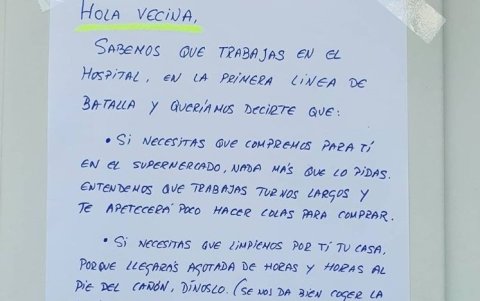 HOLA VECINA,
SABEMOS QUE TRABAJAS EN EL
HOSPITAL, EN LA PRIMERA LINEA DE
BATALLA Y QUERÍAMOS DECIRTE QUE:
• SI NECESITAS QUE COMPREMOS PARA TÍ
EN EL SUPERMERCADO, NADA MÁS QUE LO PIDAS.
ENTENDEMOS QUE TRABAJAS TURNOS LARGOS Y
TE APETECERÁ POCO HACER COLAS PARA COMPRAR.
• SI NECESITAS QUE LIMPIEMOS POR TÍ TU CASA,
PORQUE LLEGARÁS AGOTADA DE HORAS Y HORAS AL
PIE DEL CAÑÓN, DÍNOSLO. (SE NOS DA BIEN COGER LA